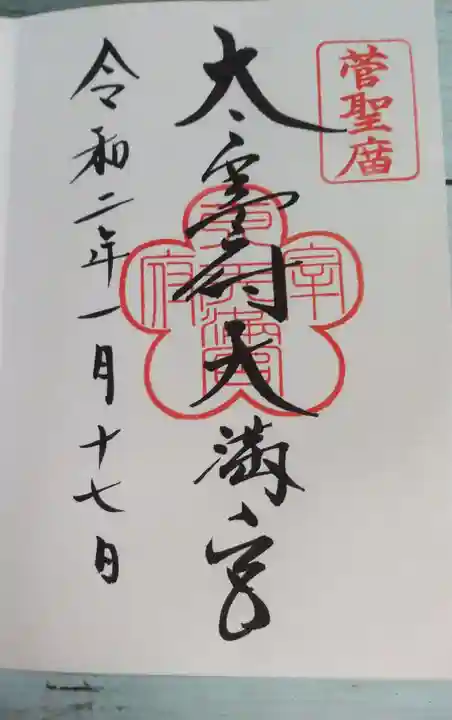 菅聖庿
太宰府天満宮
令和二年一月十七日